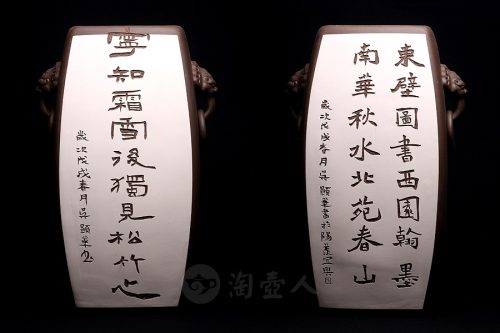 寧知霜雪後獨見松竹心
歲次戊戌春月吳顯業書
東壁圖書西園翰墨
南華秋水北苑春山
歲次戊戌春月吳顯業書於陽羨宜興
淘壺人